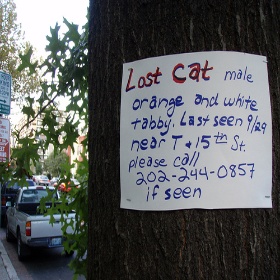 Lost Cat male
orange and white
tabby. Last seen 9/29
near T + 15th St.
please call
202-244-0857
if seen